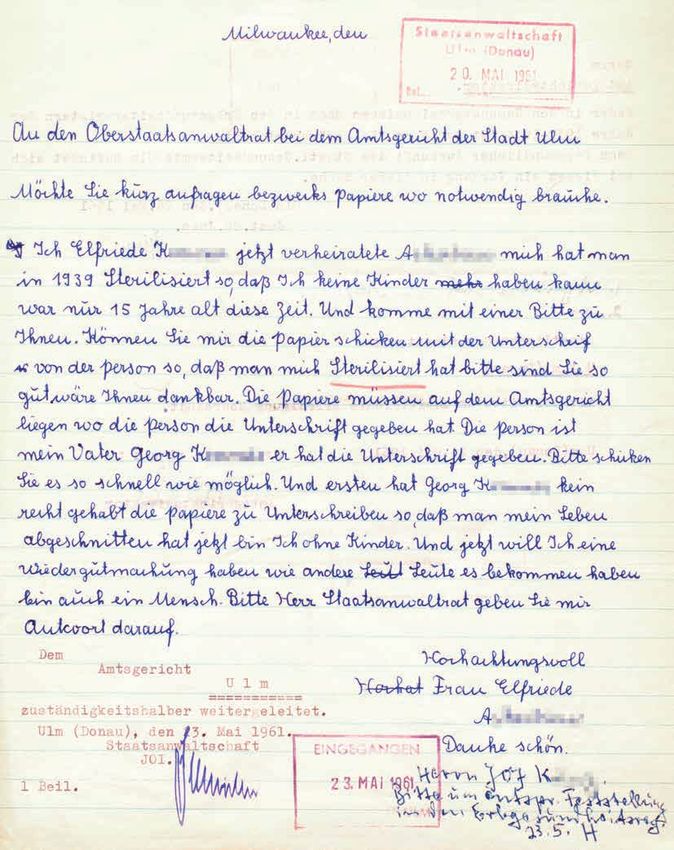 Milwaukee, den
Staatsanwaltschaft
Ulm (Donau)
20. MAI 1961
An den Oberstaatsanwaltrat bei dem Amtsgericht der Stadt Ulm
Möchte Sie kurz anfragen bezwecks papiere wo notwendig brauche.
Ich Elfriede K jetzt verheiratete A mich hat man
in 1939 Sterilisiert so, daß Ich keine Kinder mehr haben kann
war nur 15 Jahre alt diese Zeit. Und komme mit einer Bitte zu
Ihnen. Können Sie mir die papier schicken mit der Unterschrif
von der person so, daß man mich Sterilisiert hat bitte sind Sie so
gut wäre Ihnen dankbar. Die papiere müssen auf dem Amtsgericht
liegen wo die person die Unterschrift gegeben hat. Die person ist
mein Vater Georg K er hat die Unterschrift gegeben. Bitte schicken
Sie es so schnell wie möglich. Und ersten hat Georg K kein
recht gehabt die papiere zu Unterschreiben so, daß man mein Leben
abgeschnitten hat jetzt bin Ich ohne Kinder. Und jetzt will Ich eine
Wiedergutmachung haben wie andere Leut Leute es bekommen haben
bin auch ein Mensch. Bitte Herr Staatsanwaltrat geben Sie mir
Antwort darauf.
Hochachtungsvoll
Frau Elfriede
A
Danke schön.
Dem
Amtsgericht
Ulm
zuständigkeitshalber weitergeleitet.
Ulm (Donau), den 23. Mai 1961.
Staatsanwaltschaft
JOI.
1 Beil.
EINGEGANGEN
23. MAI 1961
Herrn K
Bitte um Feststellung
23.5. H